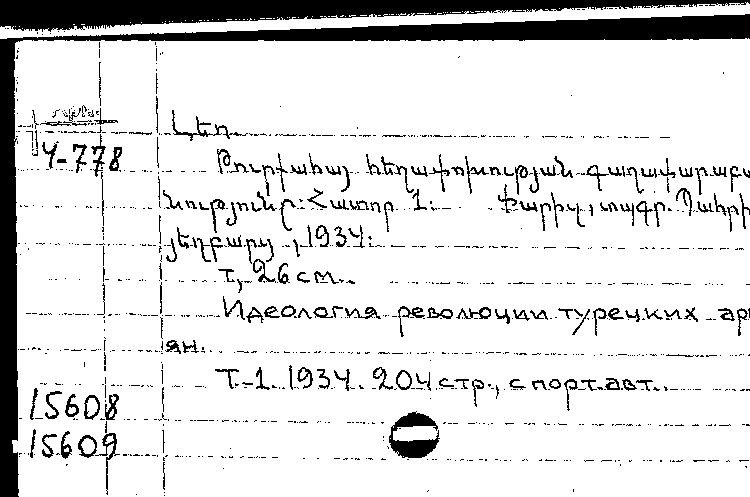 Լեո.
Ч-778
Թուրքահայ հեղափոխության գաղափարաբա
նությունը: Հատոր 1: Փարիզ, տպգր. Պահրի
յեղբարց, 1934:
т, 26 см.
Идеология революции турецких арм
ян.
Т-1. 1934. 204 стр., с порт. авт.
15608
15609